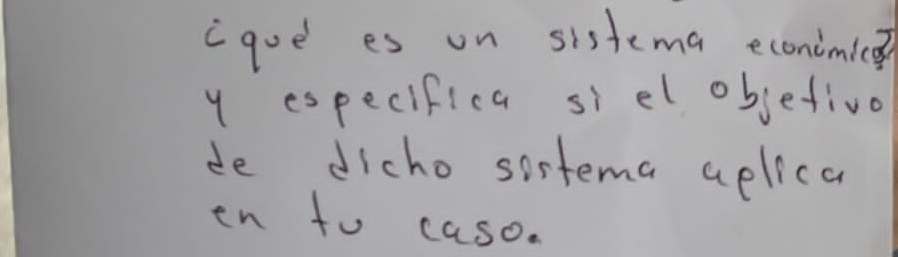 ¿qué es un sistema económico?
y especifica si el objetivo
de dicho sistema aplica
en tu caso.